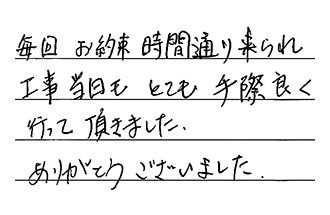 毎回 お約束 時間通り来られ
工事当日も とても 手際良く
行って 頂きました.
ありがとう ございました.